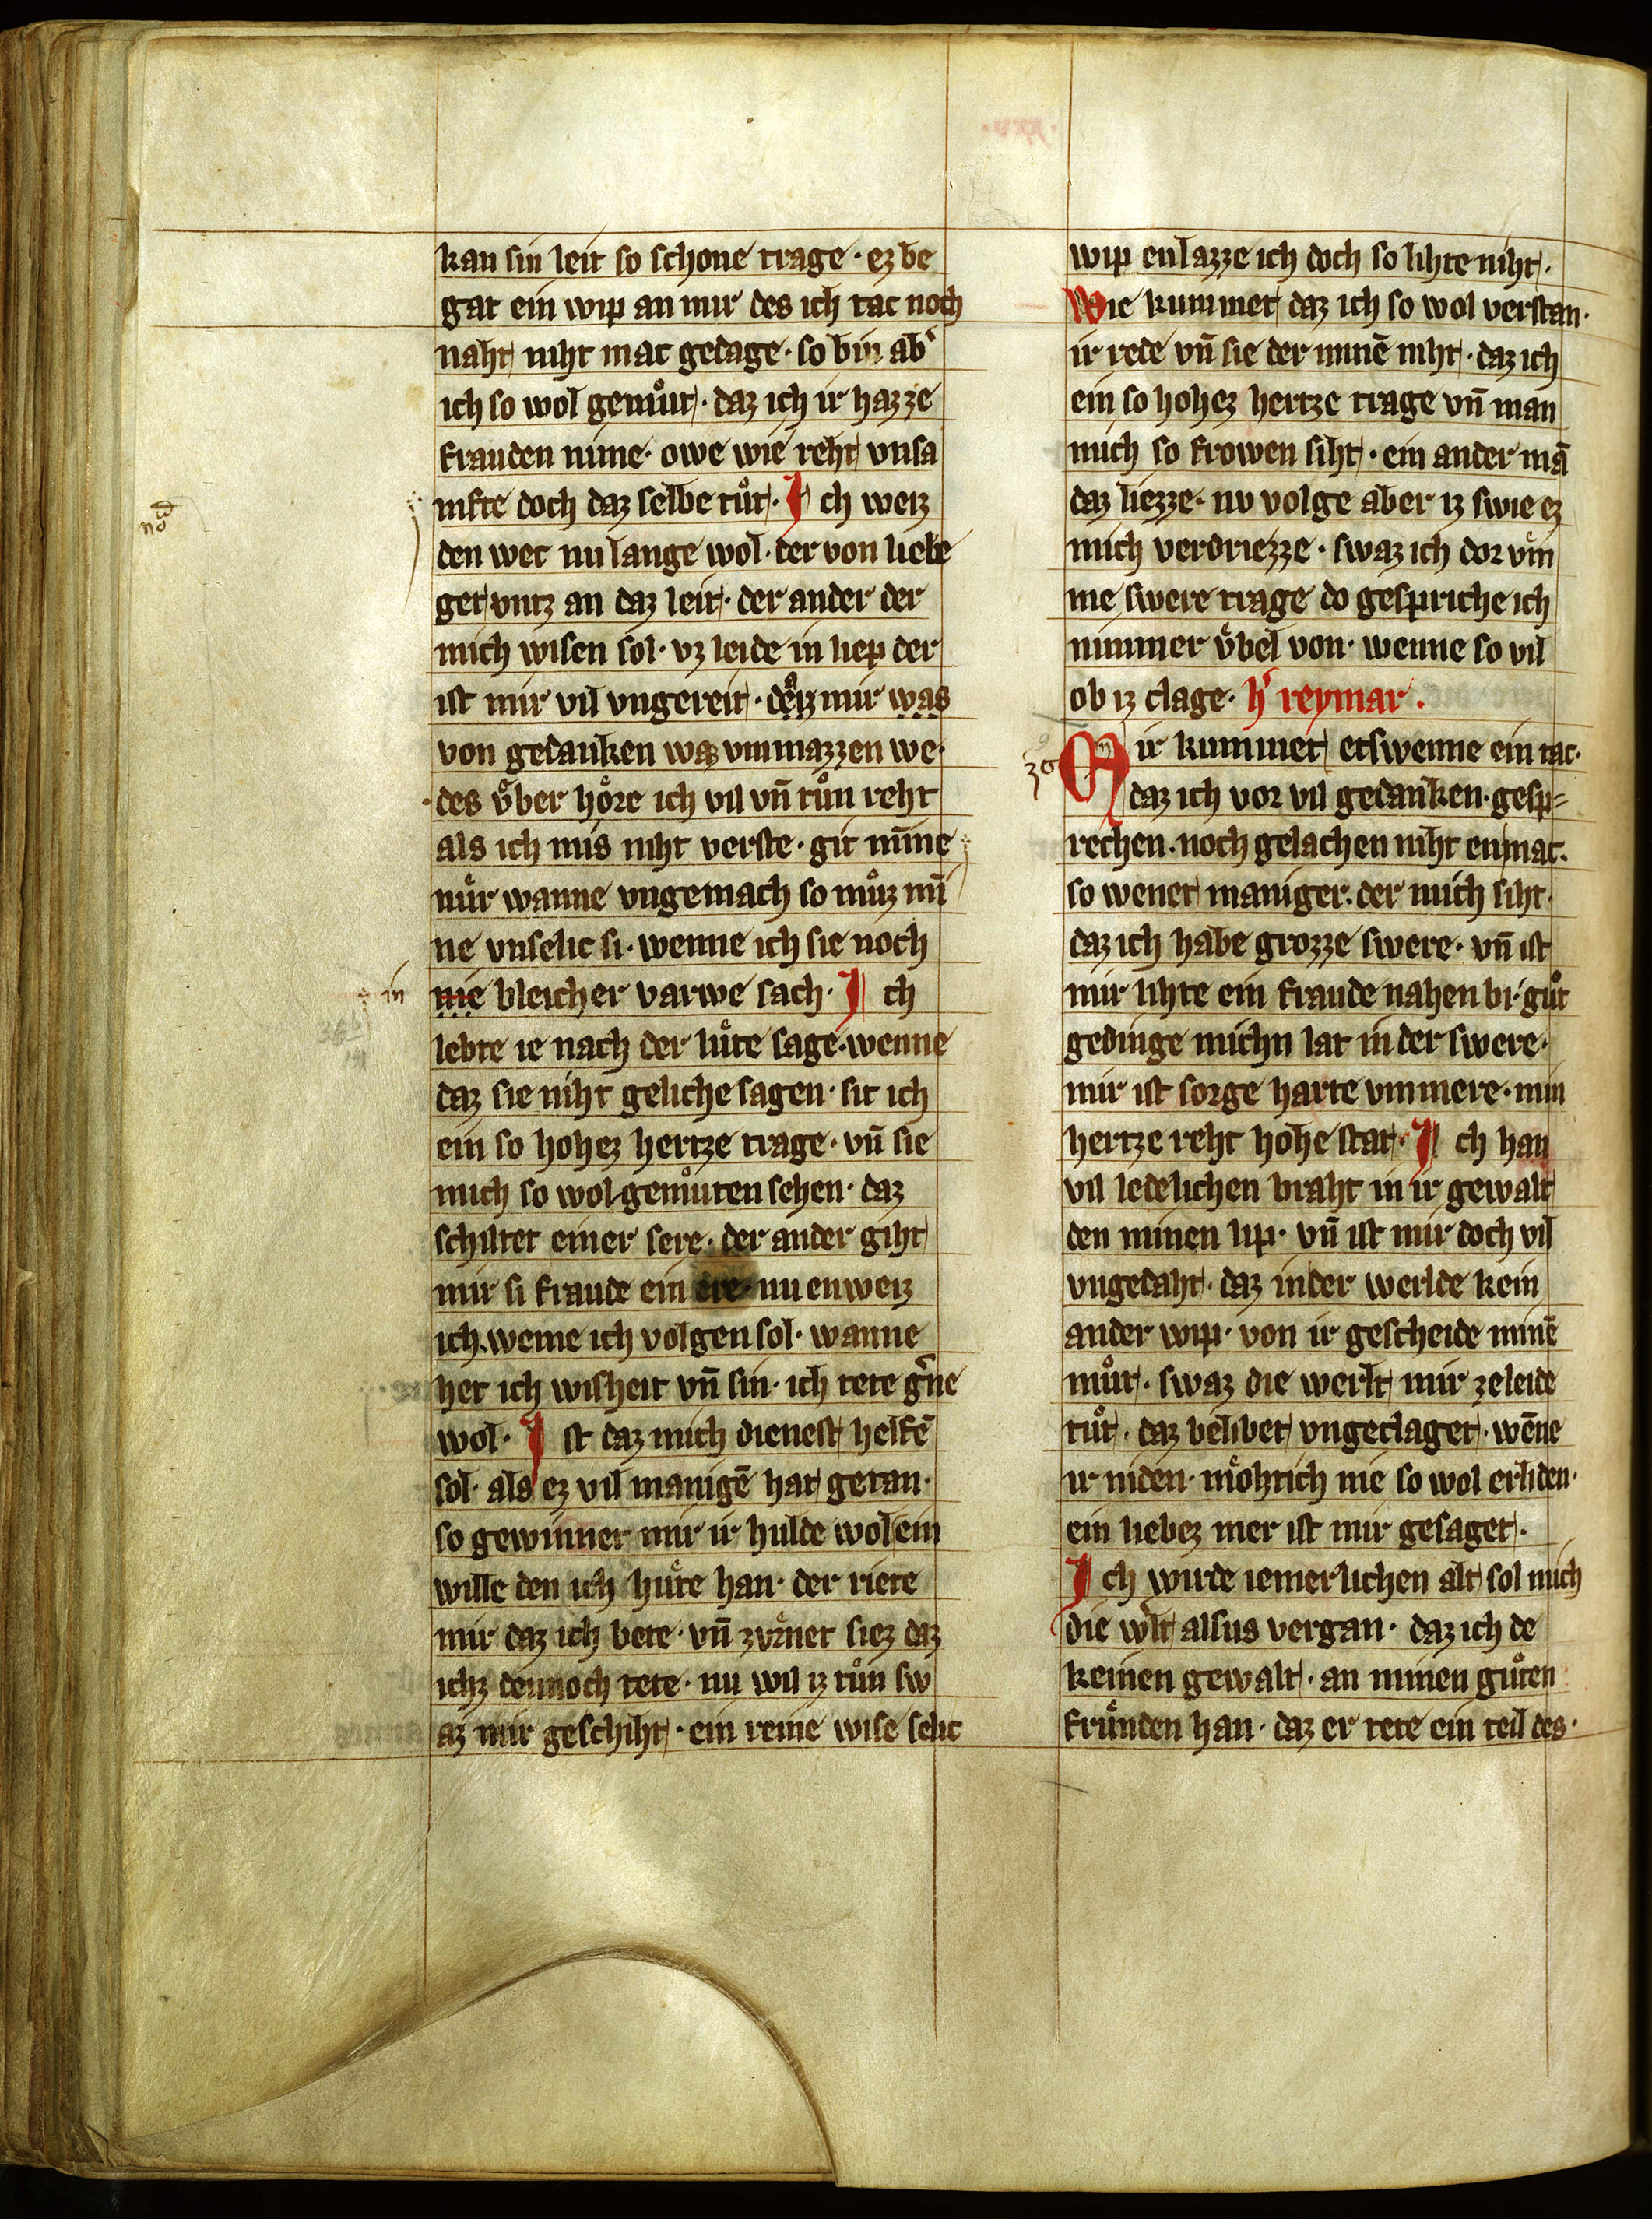 kan sin leit so schone trage · ez be
gat ein wip an mir des ich tac noch
naht niht mac gedage · so bin ab͛
ich so wol gemuͦt · daz ich ir hazze
frauden nime · owe wie reht vnsa
nifte doch daz selbe tuͦt · Ich weiz
den wec nu lange wol · der von liebe
get vntz an daz leit · der ander der
mich wisen sol · vz leide in liep der
ist mir vil vngereit · deͣiz mir was
von gedanken waz vmmazzen we ·
· des vͤber hoͤre ich vil vn̄ tuͦn reht
als ich mis niht verste · git mīne
nuͤr wanne vngemach so muͦz mī
ne vnselic si · wenne ich sie noch
in
nie bleicher varwe sach · Ich
lebte ie nach der luͤte sage · wenne
daz sie niht geliche sagen · sit ich
ein so hohez hertze trage · vn̄ sie
mich so wol gemuͦten sehen · daz
schiltet einer sere · der ander giht
mir si fraude ein ere · nu enweiz
ich · weme ich volgen sol · wanne
het ich wisheit vn̄ sin · ich tete g͛ne
wol · Ist daz mich dienest helfē
sol · als ez vil manigē hat getan ·
so gewinnet mir ir hulde wol ein
wille den ich huͤte han · der riete
mir daz ich bete · vn̄ zvͤrnet siez daz
ichz dennoch tete · nu wil iz tuͦn sw
az mir geschiht · ein reine wise selic
wip enlazze ich doch so lihte niht ·
Wie kummet daz ich so wol verstan ·
ir rede vn̄ sie der minē niht · daz ich
ein so hohez hertze trage vn̄ man
mich so frowen siht · ein ander mā
daz liezze · nv volge aber iz swie ez
mich verdriezze · swaz ich dor vͤm
me swere trage do gespriche ich
nimmer vͤbel von · wenne so vil
ob iz clage · h͛ reymar ·
Mir kummet etswenne ein tac ·
daz ich vor vil gedanken · gesp=
rechen · noch gelachen niht enmac ·
so wenet maniger · der mich siht ·
daz ich habe grozze swere · vn̄ ist
mir lihte ein fraude nahen bi · guͦt
gedinge michn lat in der swere ·
mir ist sorge harte vmmere · min
hertze reht hohe stat · Ich han
vil ledelichen braht in ir gewalt
den minen lip · vn̄ ist mir doch vil
vngedaht · daz in der werlde kein
ander wip · von ir gescheide minē
muͦt · swaz die werlt mir zeleide
tuͦt · daz belibet vngeclaget · wēne
ir niden · moͤhtich nie so wol erliden ·
ein liebez mer ist mir gesaget ·
Ich wirde iemerlichen alt sol mich
die w͛lt alsus vergan · daz ich de
keinen gewalt · an minen guͦten
fruͤnden han · daz er tete ein teil des ·